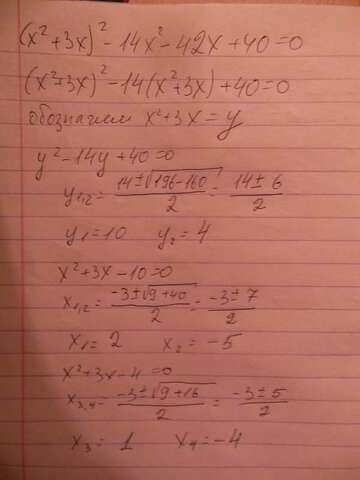 (x²+3x)²-14x²-42x+40=0
(x²+3x)²-14(x²+3x)+40=0
обозначаем x²+3x=y
y²-14y+40=0
y₁,₂=(14±√(196-160))/2=(14±6)/2
y₁=10 y₂=4
x²+3x-10=0
x₁,₂=(-3±√(9+40))/2=(-3±7)/2
x₁=2 x₂=-5
x²+3x-4=0
x₃,₄=(-3±√(9+16))/2=(-3±5)/2
x₃=1 x₄=-4